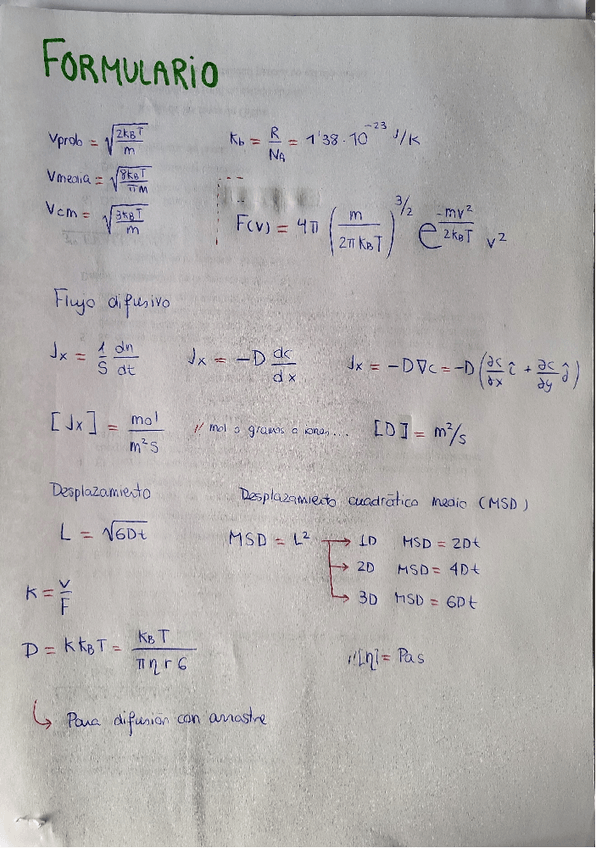 FORMULARIO
Vprob = √(2KBT/m)
Kb = R/NA = 1'38·10^-23 J/K
Vmedia = √(8KBT/πM)
Vcm = √(3KBT/m)
F(v) = 4π (m/2πKBT)^3/2 e^(-mv²/2KBT) v²
Flujo difusivo
Jx = 1/S dn/dt
Jx = -D dc/dx
Jx = -D∇c = -D(∂c/∂x î + ∂c/∂y ĵ)
[Jx] = mol/m²s
// mol o gramos o iones...
[D] = m²/s
Desplazamiento
Desplazamiento cuadrático medio (MSD)
L = √6Dt
MSD = L² → 1D MSD = 2Dt
→ 2D MSD = 4Dt
→ 3D MSD = 6Dt
K = v/F
D = KKBT = KBT/πηr6
//[η] = Pas
↳ Para difusión con arrastre